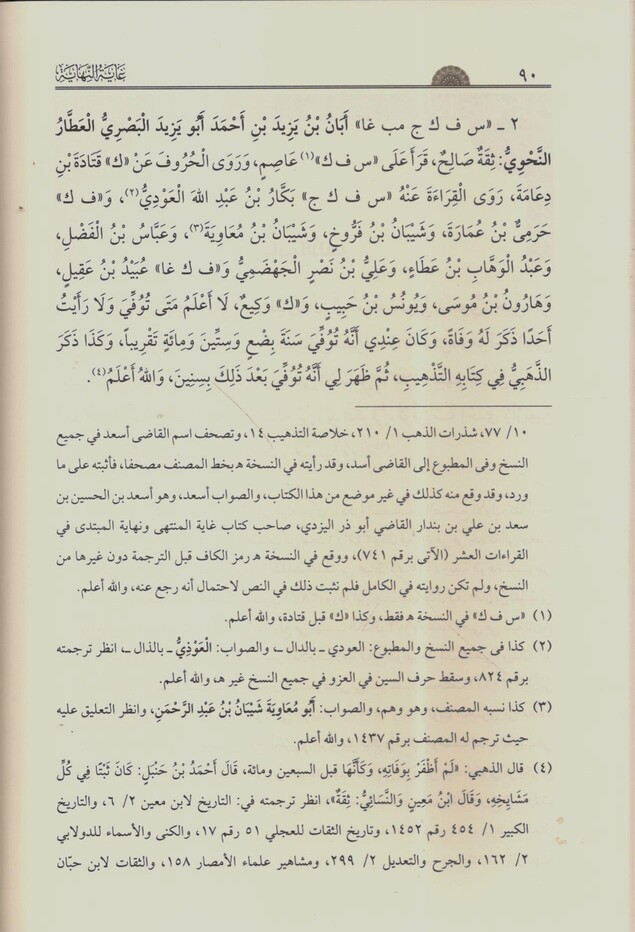 ٩٠
غاية النهاية
٢ ـ «س ف ك ج مب غا» أَبَانُ بْنُ يَزِيدَ بْنِ أَحْمَدَ أَبُو يَزِيدَ الْبَصْرِيُّ الْعَطَّارُ
النَّحْوِيُّ: ثِقَةٌ صَالِحٌ، قَرَأَ عَلَى «س ف ك»(١) عَاصِمٍ، وَرَوَى الْحُرُوفَ عَنْ «ك» قَتَادَةَ بْنِ
دِعَامَةَ، رَوَى الْقِرَاءَةَ عَنْهُ «س ف ك ج» بَكَّارُ بْنُ عَبْدِ اللهَ الْعَوْدِيُّ(٢)، وَ«ف ك»
حَرَمِيُّ بْنُ عُمَارَةَ، وَشَيْبَانُ بْنُ فَرُّوخٍ، وَشَيْبَانُ بْنُ مُعَاوِيَةَ(٣)، وَعَبَّاسُ بْنُ الْفَضْلِ،
وَعَبْدُ الْوَهَّابِ بْنُ عَطَاءٍ، وَعَلِيُّ بْنُ نَصْرٍ الْجَهْضَمِيُّ وَ«ف ك غا» عُبَيْدُ بْنُ عَقِيلٍ،
وَهَارُونُ بْنُ مُوسَى، وَيُونُسُ بْنُ حَبِيبٍ، وَ«ك» وَكِيعٌ، لَا أَعْلَمُ مَتَى تُوُفِّيَ وَلَا رَأَيْتُ
أَحَدًا ذَكَرَ لَهُ وَفَاةً، وَكَانَ عِنْدِي أَنَّهُ تُوُفِّيَ سَنَةَ بِضْعٍ وَسِتِّينَ وَمِائَةٍ تَقْرِيباً، وَكَذَا ذَكَرَ
الذَّهَبِيُّ فِي كِتَابِهِ التَّذْهِيبِ، ثُمَّ ظَهَرَ لِي أَنَّهُ تُوُفِّيَ بَعْدَ ذَلِكَ بِسِنِينَ، وَاللهُ أَعْلَمُ(٤).
١٠/ ٧٧، شذرات الذهب ١/ ٢١٠، خلاصة التذهيب ١٤، وتصحف اسم القاضى أسعد في جميع
النسخ وفى المطبوع إلى القاضى أسد، وقد رأيته في النسخة ﻫ بخط المصنف مصحفا، فأثبته على ما
ورد، وقد وقع منه كذلك في غير موضع من هذا الكتاب، والصواب أسعد، وهو أسعد بن الحسين بن
سعد بن علي بن بندار القاضي أبو ذر اليزدي، صاحب كتاب غاية المنتهى ونهاية المبتدى في
القراءات العشر (الآتى برقم ٧٤١)، ووقع في النسخة ﻫ رمز الكاف قبل الترجمة دون غيرها من
النسخ، ولم تكن روايته في الكامل فلم نثبت ذلك في النص لاحتمال أنه رجع عنه، والله أعلم.
(١) «س ف ك» في النسخة ﻫ فقط، وكذا «ك» قبل قتادة، والله أعلم.
(٢) كذا فى جميع النسخ والمطبوع: العودي ـ بالدال ـ، والصواب: الْعَوْذِيُّ ـ بالذال ـ، انظر ترجمته
برقم ٨٢٤، وسقط حرف السين في العزو في جميع النسخ غير ﻫ، والله أعلم.
(٣) كذا نسبه المصنف، وهو وهم، والصواب: أَبُو مُعَاوِيَةَ شَيْبَانُ بْنُ عَبْدِ الرَّحْمَنِ، وانظر التعليق عليه
حيث ترجم له المصنف برقم ١٤٣٧، والله أعلم.
(٤) قال الذهبي: «لَمْ أَظْفَرْ بِوَفَاتِهِ، وَكَأَنَّهَا قبل السبعين ومائة، قَالَ أَحْمَدُ بْنُ حَنْبَلٍ: كَانَ ثَبْتًا فِي كُلِّ
مَشَايِخِهِ، وَقَالَ ابْنُ مَعِينٍ وَالنَّسَائِيُّ: ثِقَةٌ»، انظر ترجمته في: التاريخ لابن معين ٢/ ٦، والتاريخ
الكبير ١/ ٤٥٤ رقم ١٤٥٢، وتاريخ الثقات للعجلي ٥١ رقم ١٧، والكنى والأسماء للدولابي
٢/ ١٦٢، والجرح والتعديل ٢/ ٢٩٩، ومشاهير علماء الأمصار ١٥٨، والثقات لابن حبّان